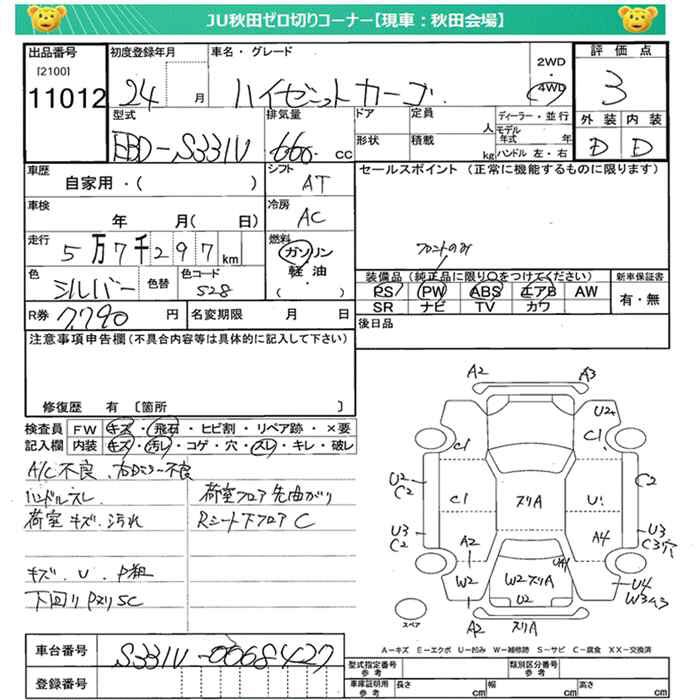 JU秋田ゼロ切りコーナー【現車：秋田会場】
出品番号
[2100]
11012
初度登録年月
24 月
車名・グレード
ハイゼットカーゴ
2WD
・
4WD
評価点
3
外装 内装
D D
型式
EBD-S331V
排気量
660 cc
ドア
形状
定員
人
積載
kg
ディーラー・並行
モデル年式 年
ハンドル 左・右
車歴
自家用・( )
シフト
AT
セールスポイント (正常に機能するものに限ります)
車検
年 月( 日)
冷房
AC
走行
5万7千297km
燃料
ガソリン
軽油
( )
フロントのみ
色
シルバー
色替
色コード
S28
装備品(純正品に限り○をつけてください)
PS PW ABS エアB AW
SR ナビ TV カワ
新車保証書
有・無
R券
7,790 円
名変期限 月 日
後日品
注意事項申告欄(不具合内容等は具体的に記入して下さい)
修復歴 有 〔箇所 〕
検査員記入欄
FW キズ・飛石・ヒビ割・リペア跡・×要
内装 キズ・汚れ・コゲ・穴・スレ・キレ・破レ
A/C不良、右Dミラー不良
ハンドルスレ
荷室キズ、汚れ
荷室フロア先曲がり
Rシート下フロアC
キズ、U、P粗
下回りPスリSC
A2
A3
U2
C1
C1
U2
C2
C2
C1
スリA
U1
U3
C2
U3
C3穴
A2
A4
UA1
W2
W2スリA
U2
U4
W3ムラ
A2
スリA
スペア
A－キズ E－エクボ U－凹み W－補修跡 S－サビ C－腐食 XX－交換済
車台番号
S331V-0068427
登録番号
型式指定番号
参考
類別区分番号
参考
車庫証明用
参考
長さ cm
幅 cm
高さ cm